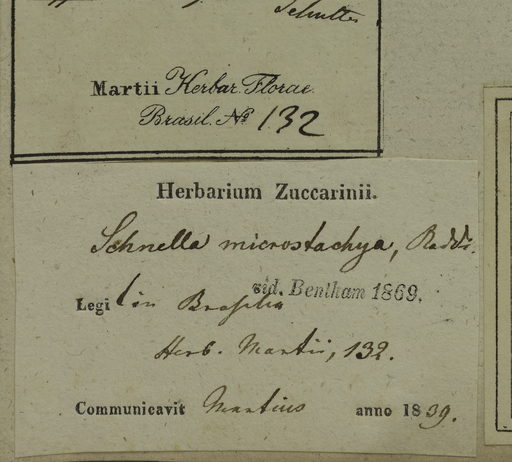 Schultes
Martii Herbar. Florae
Brasil. No 132
Herbarium Zuccarinii.
Schnella microstachya, Raddi.
vid. Bentham 1869.
Legit in Brasilia
Herb. Martii, 132.
Communicavit Martius anno 1839.